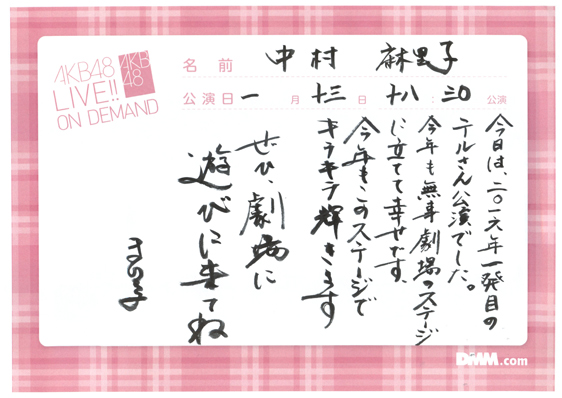 AKB48
LIVE!!
ON DEMAND
AKB
48
名前 中村 麻里子
公演日 一月 十三日 十八:三〇 公演
今日は、二〇一六年一発目の
テルさん公演でした。
今年も無事劇場のステージ
に立てて幸せです。
今年もこのステージで
キラキラ輝きます
ぜひ、劇場に
遊びに来てね
まりこ
DMM.com